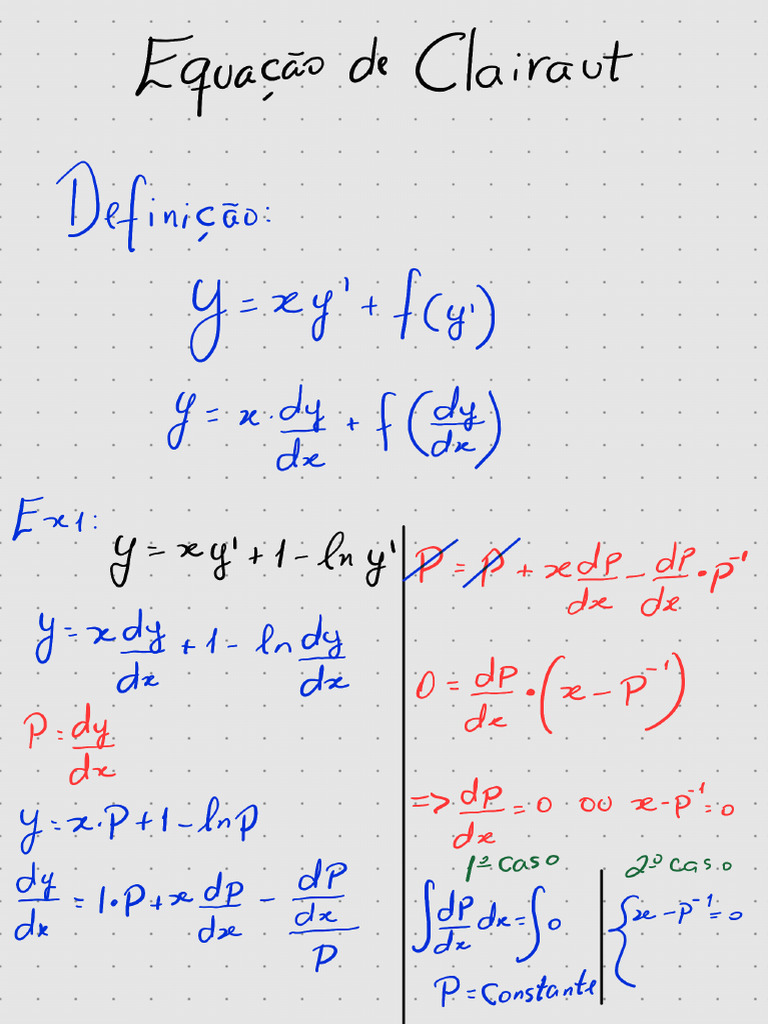 Equação de Clairaut
Definição:
y = xy' + f(y')
y = x · dy/dx + f(dy/dx)
Ex1:
y = xy' + 1 - ln y'
y = x dy/dx + 1 - ln dy/dx
P = dy/dx
y = x·P + 1 - ln P
dy/dx = 1·P + x dp/dx - (dP/dx)/P
P = P + x dp/dx - dP/dx · p⁻¹
0 = dP/dx · (x - P⁻¹)
=> dP/dx = 0 ou x - P⁻¹ = 0
1º caso
∫ dP/dx dx = ∫ 0
P = Constante
2º caso
{ x - P⁻¹ = 0